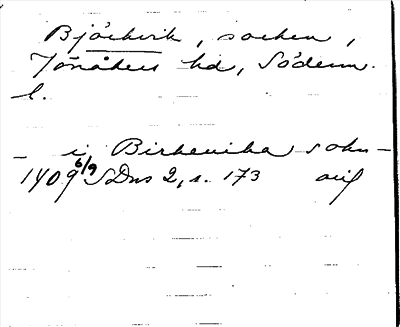 Björkvik, socken,
Jönåkers hd, Söderm.
l.
i Birkeuika sokn
1409 6/9 SDns 2, s. 173 orig